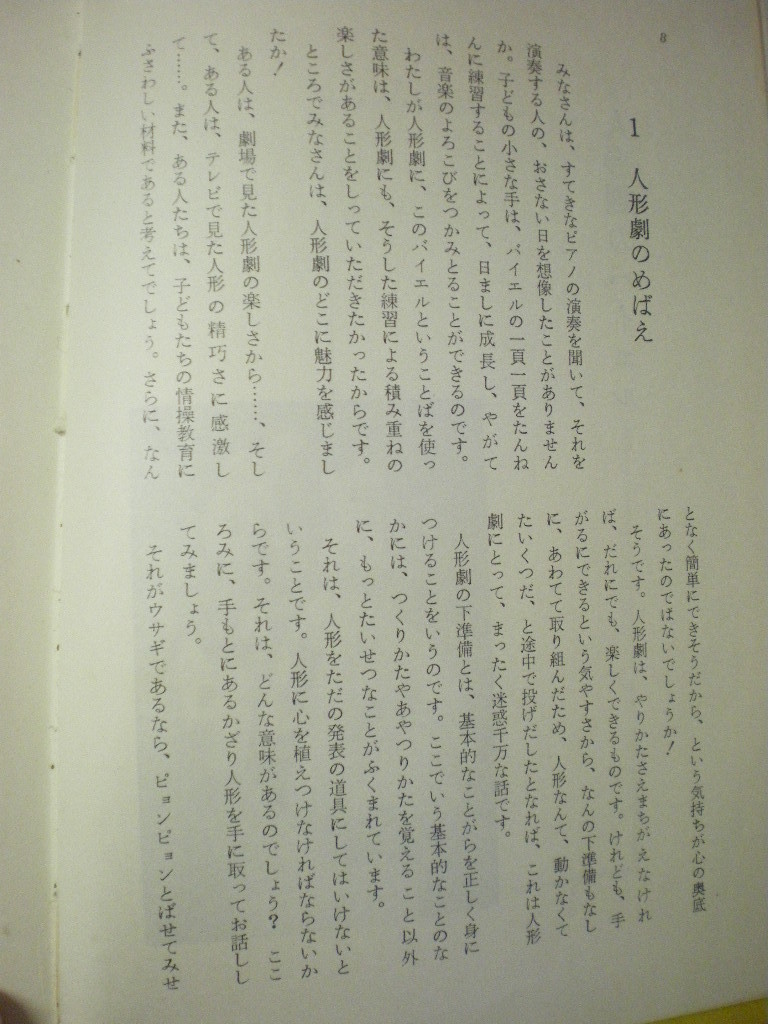 8
1 人形劇のめばえ
みなさんは、すてきなピアノの演奏を聞いて、それを
演奏する人の、おさない日を想像したことがありません
か。子どもの小さな手は、バイエルの一頁一頁をたんね
んに練習することによって、日ましに成長し、やがて
は、音楽のよろこびをつかみとることができるのです。
わたしが人形劇に、このバイエルということばを使っ
た意味は、人形劇にも、そうした練習による積み重ねの
楽しさがあることをしっていただきたかったからです。
ところでみなさんは、人形劇のどこに魅力を感じまし
たか!
ある人は、劇場で見た人形劇の楽しさから……、そし
て、ある人は、テレビで見た人形の精巧さに感激し
て……。また、ある人たちは、子どもたちの情操教育に
ふさわしい材料であると考えてでしょう。さらに、なん
となく簡単にできそうだから、という気持ちが心の奥底
にあったのではないでしょうか!
そうです。人形劇は、やりかたさえまちがえなけれ
ば、だれにでも、楽しくできるものです。けれども、手
がるにできるという気やすさから、なんの下準備もなし
に、あわてて取り組んだため、人形なんて、動かなくて
たいくつだ、と途中で投げだしたとなれば、これは人形
劇にとって、まったく迷惑千万な話です。
人形劇の下準備とは、基本的なことがらを正しく身に
つけることをいうのです。ここでいう基本的なことのな
かには、つくりかたやあやつりかたを覚えること以外
に、もっとたいせつなことがふくまれています。
それは、人形をただの発表の道具にしてはいけないと
いうことです。人形に心を植えつけなければならないか
らです。それは、どんな意味があるのでしょう? ここ
ろみに、手もとにあるかざり人形を手に取ってお話しし
てみましょう。
それがウサギであるなら、ピョンピョンとばせてみせ